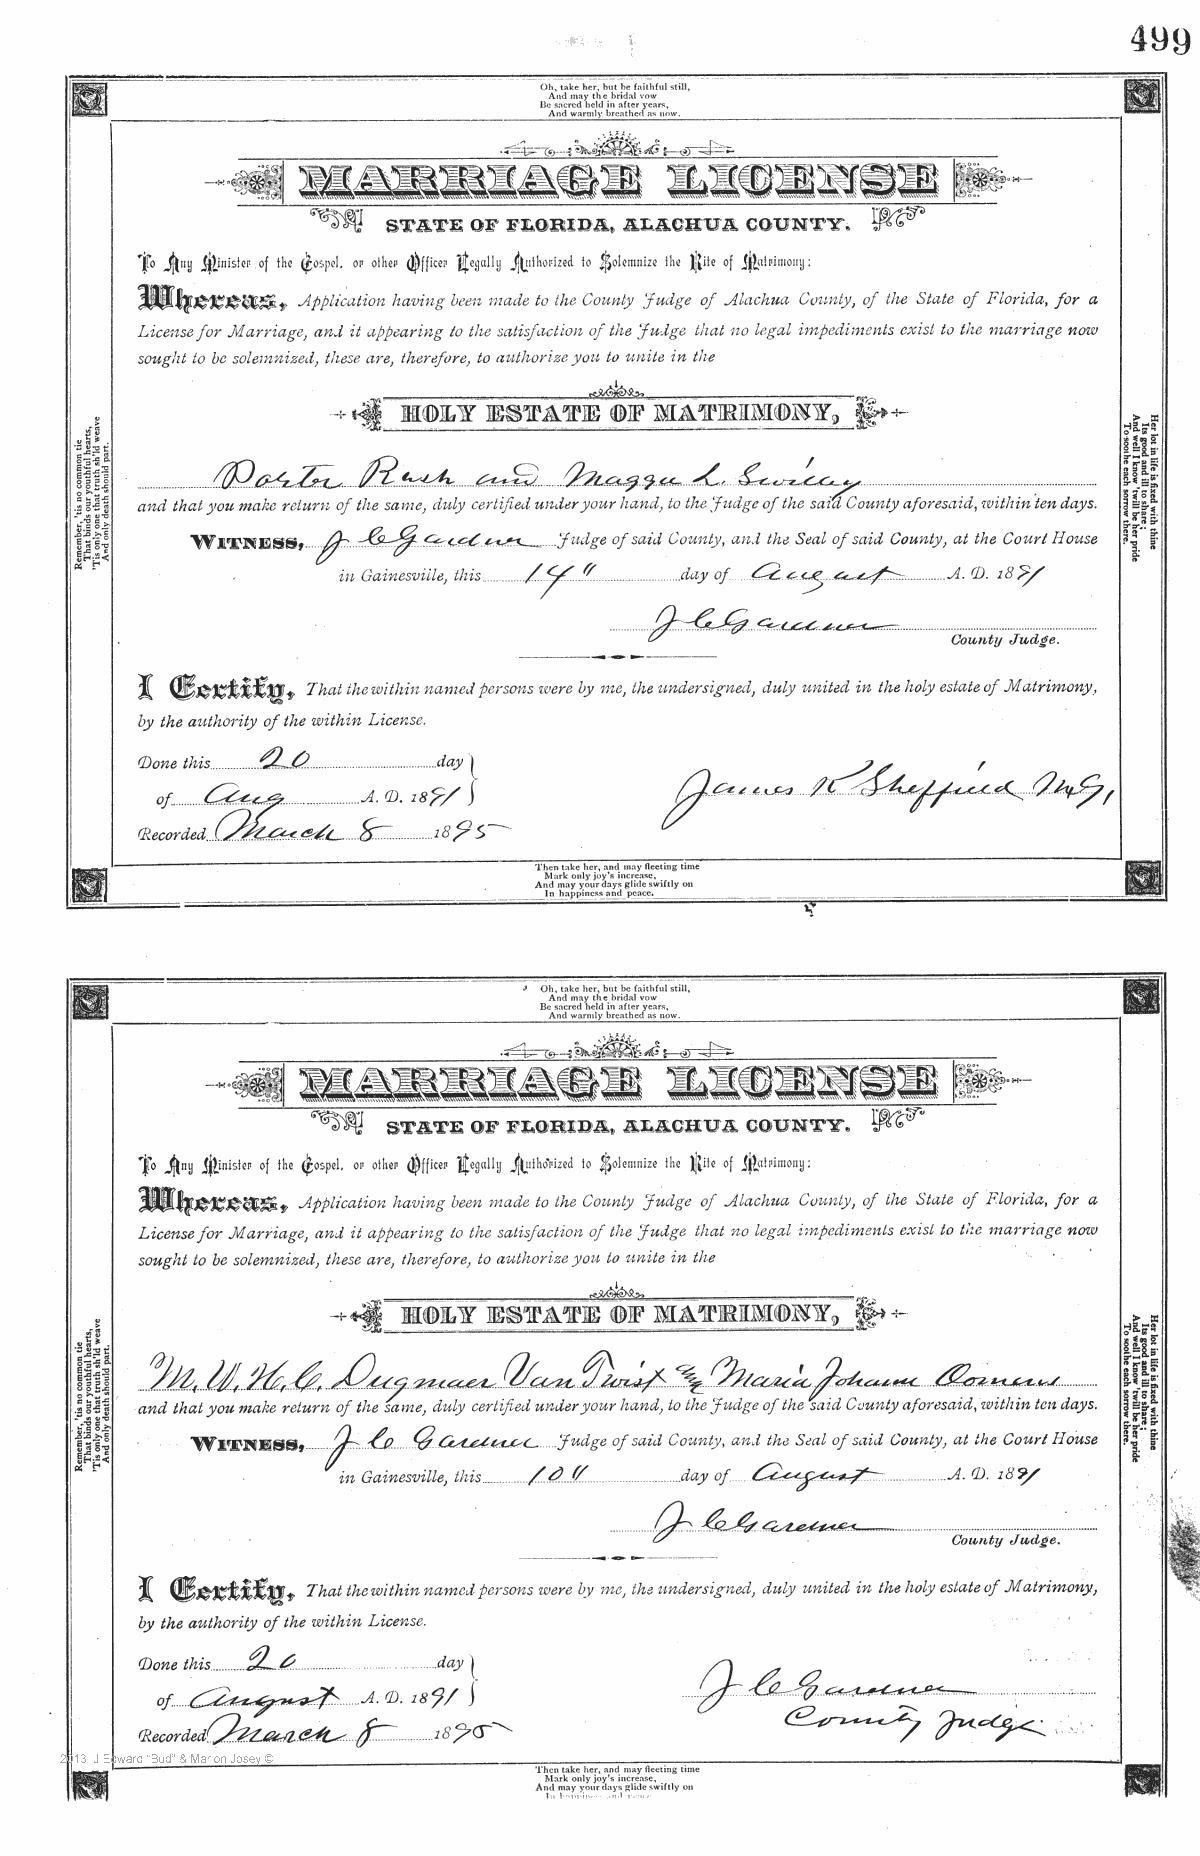 499
Oh, take her, but be faithful still,
And may the bridal vow
Be sacred held in after years,
And warmly breathed as now.
MARRIAGE LICENSE
STATE OF FLORIDA, ALACHUA COUNTY.
To Any Minister of the Gospel, or other Officer Legally Authorized to Solemnize the Rite of Matrimony:
Whereas, Application having been made to the County Judge of Alachua County, of the State of Florida, for a
License for Marriage, and it appearing to the satisfaction of the Judge that no legal impediments exist to the marriage now
sought to be solemnized, these are, therefore, to authorize you to unite in the
HOLY ESTATE OF MATRIMONY,
Porter Rush and Maggie L. Swilley
and that you make return of the same, duly certified under your hand, to the Judge of the said County aforesaid, within ten days.
WITNESS, J C Gardner Judge of said County, and the Seal of said County, at the Court House
in Gainesville, this 14" day of August A. D. 1891
J C Gardner
County Judge.
I Certify, That the within named persons were by me, the undersigned, duly united in the holy estate of Matrimony,
by the authority of the within License.
Done this 20 day
of Aug A. D. 1891
James K Sheffield M.G.
Recorded March 8 1895
Remember, 'tis no common tie
That binds our youthful hearts,
'Tis only one that truth sh'ld weave
And only death should part.
Her lot in life is fixed with thine
Its good and ill to share;
And well I know 'twill be her pride
To soothe each sorrow there.
Then take her, and may fleeting time
Mark only joy's increase,
And may your days glide swiftly on
In happiness and peace.
Oh, take her, but be faithful still,
And may the bridal vow
Be sacred held in after years,
And warmly breathed as now.
MARRIAGE LICENSE
STATE OF FLORIDA, ALACHUA COUNTY.
To Any Minister of the Gospel, or other Officer Legally Authorized to Solemnize the Rite of Matrimony:
Whereas, Application having been made to the County Judge of Alachua County, of the State of Florida, for a
License for Marriage, and it appearing to the satisfaction of the Judge that no legal impediments exist to the marriage now
sought to be solemnized, these are, therefore, to authorize you to unite in the
HOLY ESTATE OF MATRIMONY,
M. W. H. C. Dugmaer Van Twist and Maria Johann Oomens
and that you make return of the same, duly certified under your hand, to the Judge of the said County aforesaid, within ten days.
WITNESS, J C Gardner Judge of said County, and the Seal of said County, at the Court House
in Gainesville, this 10" day of August A. D. 1891
J C Gardner
County Judge.
I Certify, That the within named persons were by me, the undersigned, duly united in the holy estate of Matrimony,
by the authority of the within License.
Done this 20 day
of August A. D. 1891
J C Gardner
County Judge
Recorded March 8 1895
Remember, 'tis no common tie
That binds our youthful hearts,
'Tis only one that truth sh'ld weave
And only death should part.
Her lot in life is fixed with thine
Its good and ill to share;
And well I know 'twill be her pride
To soothe each sorrow there.
2013 J Edward "Bud" & Marion Josey ©
Then take her, and may fleeting time
Mark only joy's increase,
And may your days glide swiftly on
In happiness and peace.